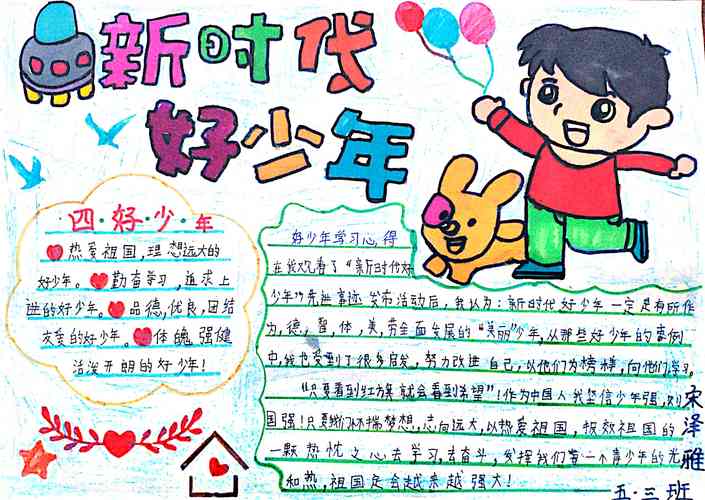 新时代
好少年
四·好·少·年
热爱祖国,理想远大的
好少年。勤奋学习,追求上
进的好少年。品德,优良,团结
友爱的好少年。体魄强健
活泼开朗的好少年!
好少年学习心得
在我观看了“新时代好
少年”先进事迹发布活动后,我认为:新时代好少年一定是有所作
为,德,智,体,美,劳全面发展的“美丽”少年,从那些好少年的事例
中,我也受到了很多启发,努力改进自己,以他们为榜样,向他们学习。
“只要看到红方巾就会看到希望”!作为中国人我坚信少年强,则
国强!只要我们怀揣梦想,志向远大,以热爱祖国,报效祖国的
一颗热忱之心去学习,去奋斗,发挥我们每一个青少年的光
和热,祖国定会越来越强大!
宋泽雅
五·三班